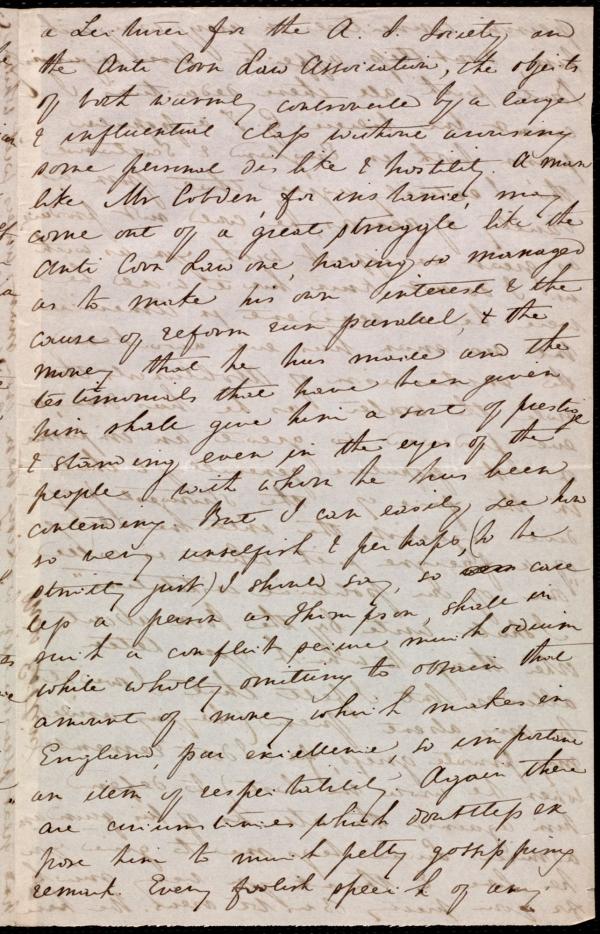 a Lecturer for the A. S. Society, and
the Anti Corn Law Association, the objects
of both warmly controverted by a large
& influential class without arousing
some personal dislike & hostility. A man
like Mr Cobden, for instance, may
come out of a great struggle like the
Anti Corn Law one, having so managed
as to make his own interest & the
cause of reform run parallel, & the
money that he has made and the
testimonials that have been given
him shall give him a sort of prestige
& standing even in the eyes of the
people with whom he has been
contending. But I can easily see how
so very unselfish & perhaps, (to be
strictly just) I should say, so care
less a person as Thompson, shall in
such a conflict secure much odium
while wholly omitting to obtain that
amount of money which makes in
England, par excellence, so important
an item of respectability. Again there
are circumstances which doubtless ex
pose him to much petty gossipping
remark. Every foolish speech of any